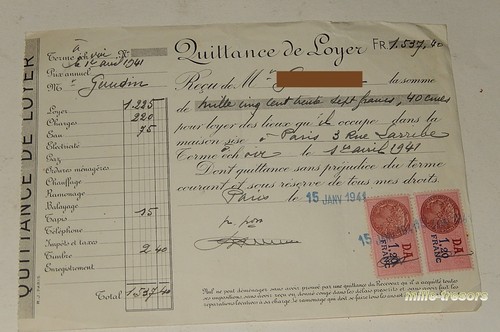 QUITTANCE DE LOYER
à
Terme échoir N°
le 1er avril 1941
Prix annuel
M. Gaudin
Loyer 1.225
Charges 220
Eau 75
Électricité
Gaz
Ordures ménagères
Chauffage
Ramonage
Balayage
Tapis 15
Téléphone
Impôts et taxes
Timbre 2 40
Enregistrement
Total 1.537,40
Quittance de Loyer FR. 1.537,40
Reçu de M. la somme
de mille cinq cent trente sept francs, 40 cmes
pour loyer des lieux qu'il occupe dans la
maison sise à Paris 3 Rue Larribe
Terme à échoir le 1er avril 1941
Dont quittance sans préjudice du terme
courant et sous réserve de tous mes droits.
Paris le 15 JANV 1941
DA
1,20
FRANC
DA
1,20
FRANC
Nul ne peut déménager sans avoir prouvé par une quittance du Receveur qu'il a acquitté toutes
ses impositions, sans avoir reçu ou donné congé dans les délais prescrits et sans avoir fait les
réparations locatives à sa charge.
mille-tresors